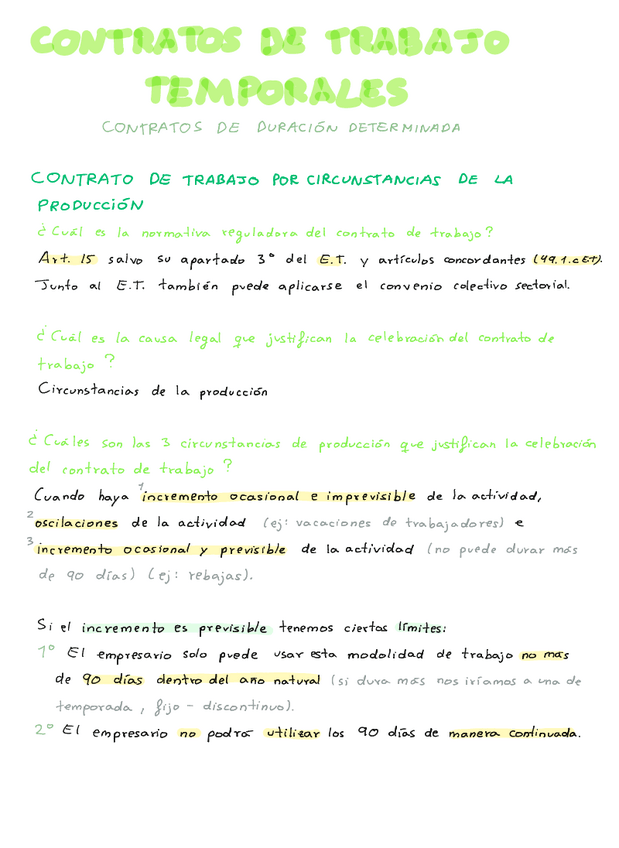 CONTRATOS DE TRABAJO
TEMPORALES
CONTRATOS DE DURACIÓN DETERMINADA
CONTRATO DE TRABAJO POR CIRCUNSTANCIAS DE LA
PRODUCCIÓN
¿Cuál es la normativa reguladora del contrato de trabajo?
Art. 15 salvo su apartado 3º del E.T. y artículos concordantes (49.1.c ET).
Junto al E.T. también puede aplicarse el convenio colectivo sectorial.
¿Cuál es la causa legal que justifican la celebración del contrato de
trabajo?
Circunstancias de la producción
¿Cuáles son las 3 circunstancias de producción que justifican la celebración
del contrato de trabajo?
Cuando haya 1 incremento ocasional e imprevisible de la actividad,
2 oscilaciones de la actividad (ej: vacaciones de trabajadores) e
3 incremento ocasional y previsible de la actividad (no puede durar más
de 90 días) (ej: rebajas).
Si el incremento es previsible tenemos ciertos límites:
1º El empresario solo puede usar esta modalidad de trabajo no más
de 90 días dentro del año natural (si dura más nos iríamos a una de
temporada, fijo-discontinuo).
2º El empresario no podrá utilizar los 90 días de manera continuada.